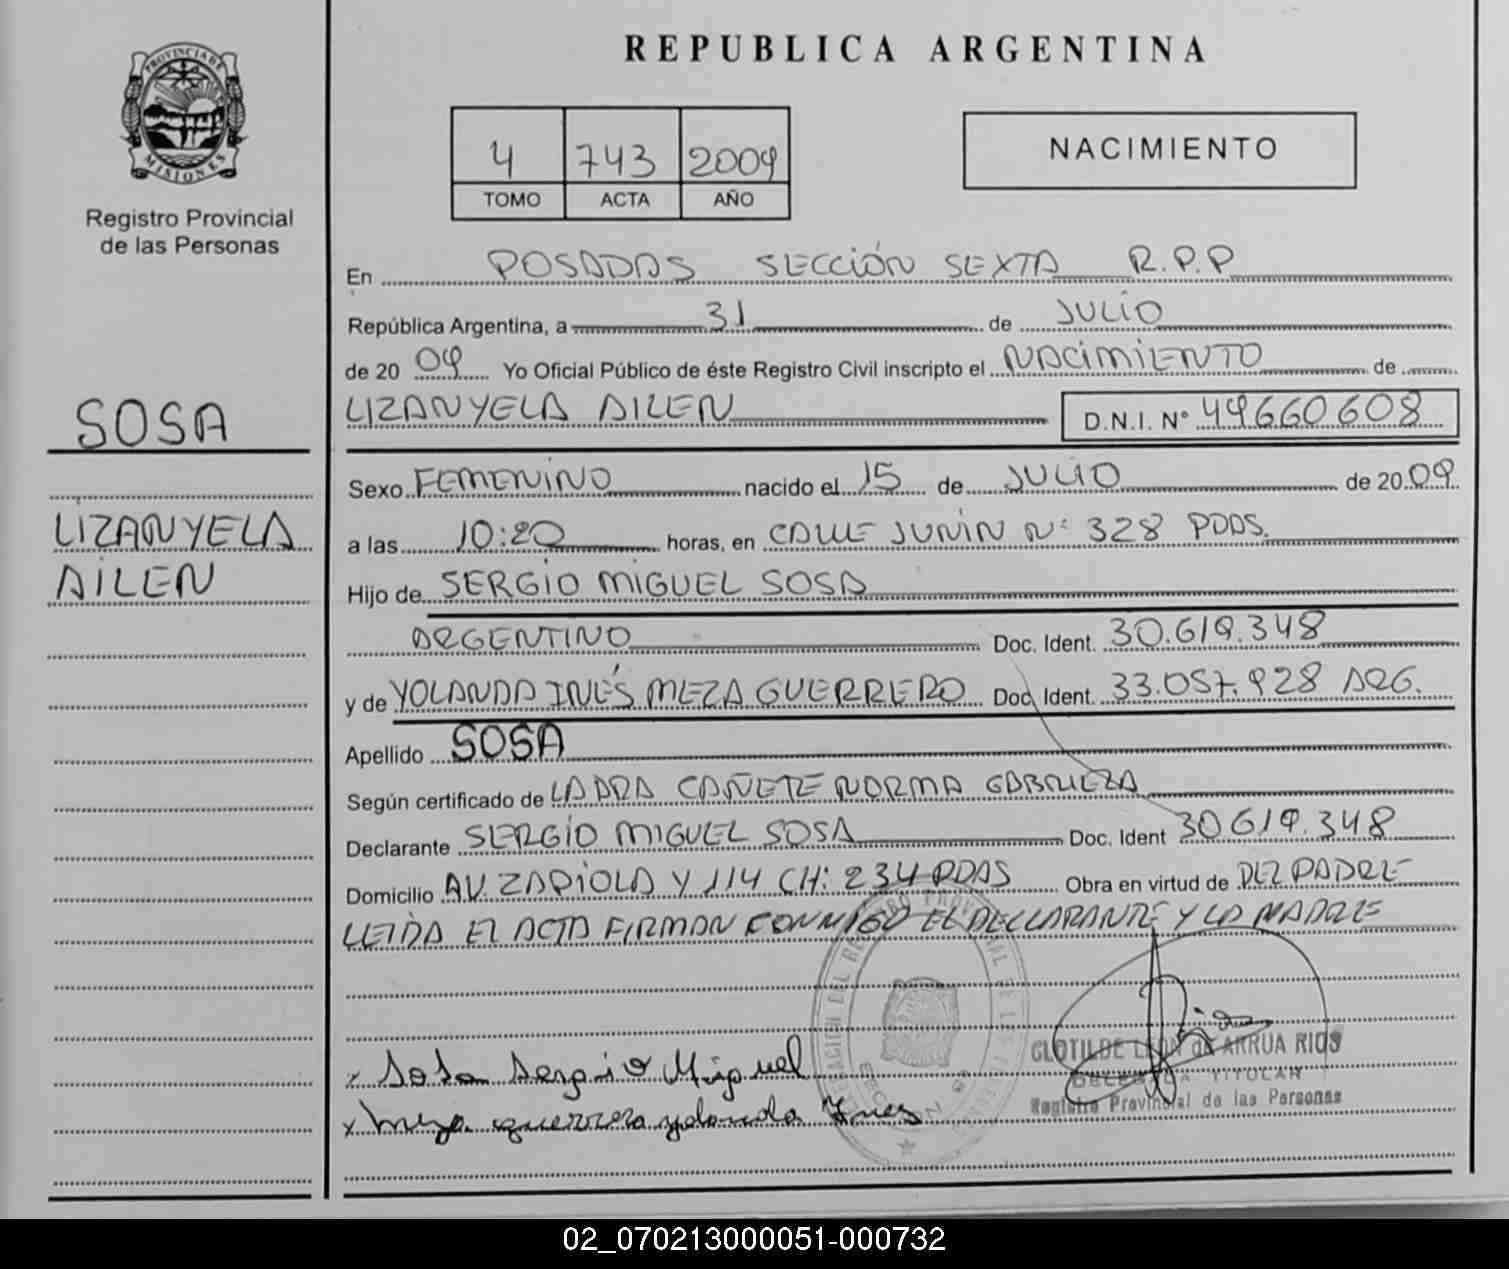 REPUBLICA ARGENTINA
PROVINCIA DE
MISIONES
Registro Provincial
de las Personas
4 743 2009
TOMO ACTA AÑO
NACIMIENTO
En POSADAS SECCIÓN SEXTA R.P.P
República Argentina, a 31 de JULIO
de 20 09 Yo Oficial Público de éste Registro Civil inscripto el NACIMIENTO de
LIZANYELA AILEN D.N.I. Nº 49660608
SOSA
LIZANYELA
AILEN
Sexo FEMENINO nacido el 15 de JULIO de 20 09
a las 10:20 horas, en CALLE JUNIN Nº 328 PDAS.
Hijo de SERGIO MIGUEL SOSA
ARGENTINO Doc. Ident. 30.619.348
y de YOLANDA INÉS MEZA GUERRERO Doc. Ident. 33.057.928 ARG.
Apellido SOSA
Según certificado de LA DRA CAÑETE NORMA GABRIELA
Declarante SERGIO MIGUEL SOSA Doc. Ident 30.619.348
Domicilio AV. ZAPIOLA Y 114 CH: 234 PDAS Obra en virtud de DEL PADRE
LEIDA EL ACTA FIRMAN CONMIGO EL DECLARANTE Y LA MADRE
CLOTILDE LEON de ARRUA RIOS
DELEGADA TITULAR
Registro Provincial de las Personas
x Sosa Sergio Miguel
x Meza guerrero yolanda Ines
02_070213000051-000732